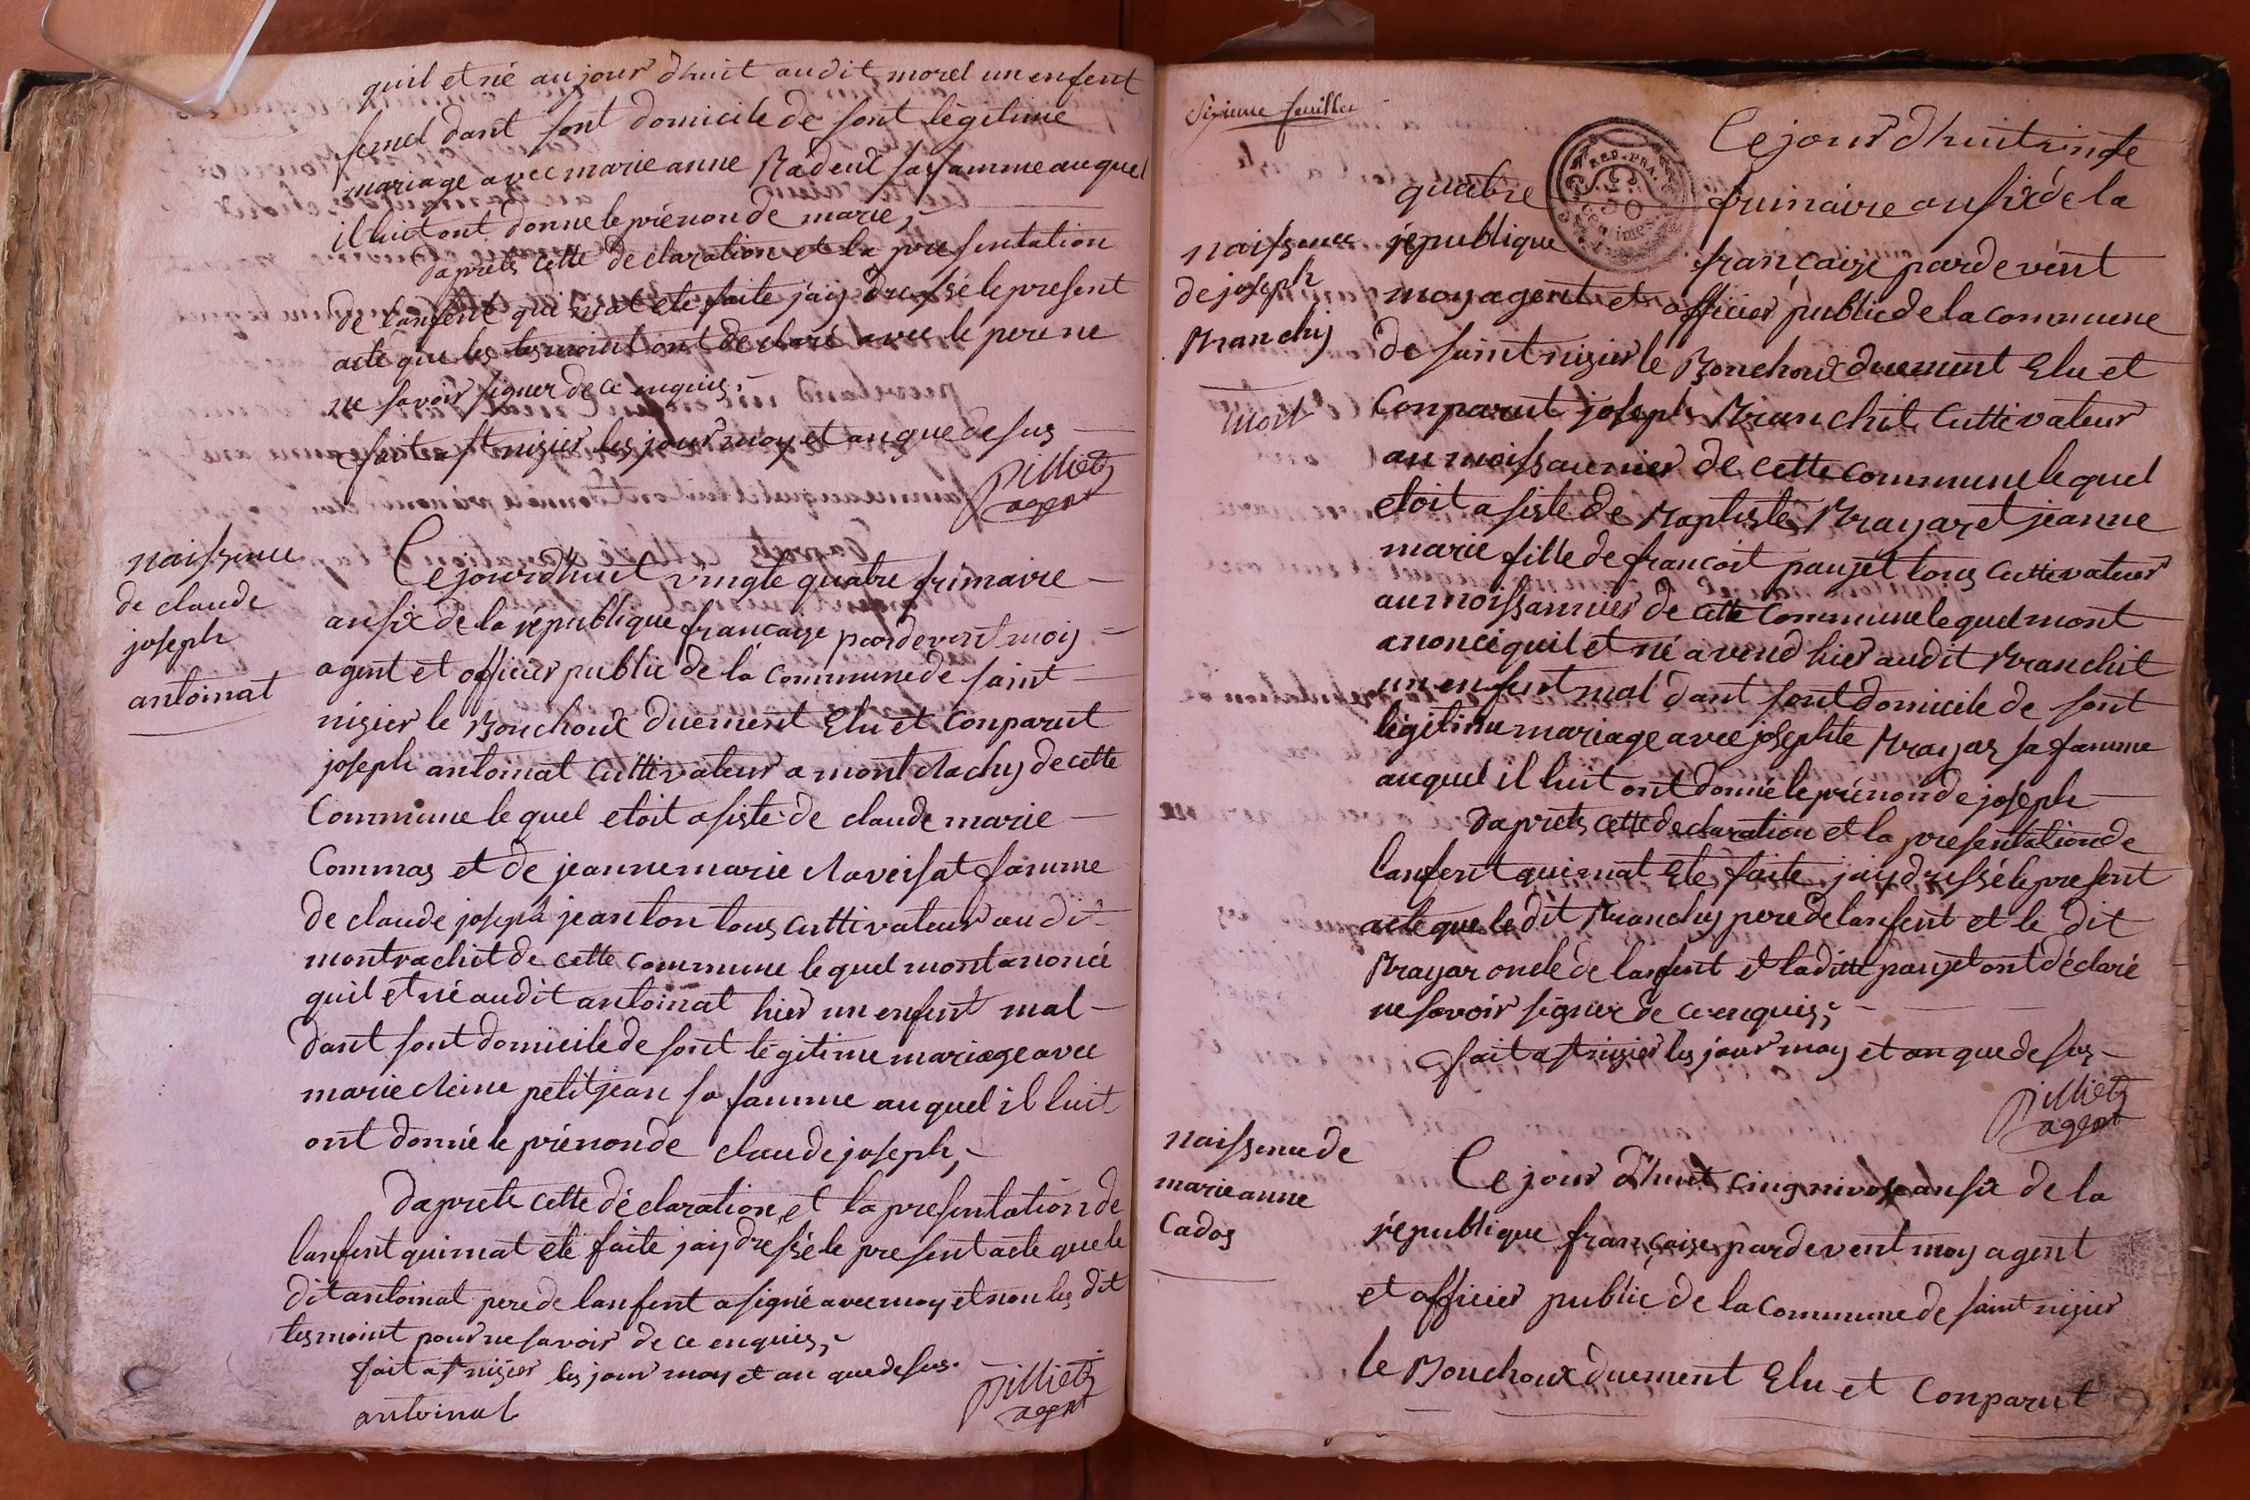 quil et né au jour dhuit audit morel un enfent
femel dant sont domicile de sont légitime
mariage avec marie anne Radeux sa famme auquel
il luit ont donne le prénon de marie,
daprets cette declaration et la presentation
de lanfent qui mat eté faite jaiy dressé le present
acte que les tesmoint ont declaré avec le pere ne
ne savoir signer de ce enquis,
fait a st nizier les jour moy et an que desus
pilliet
agent
naissence
de claude
joseph
antoinat
Ce jourdhuit vingte quatre frimaire
an six de la république francaize pardevent moiy
agent et officier public de la commune de saint
nizier le Bouchoux duement Elu et Conparut
joseph antoinat Cuttivateur a mont clachy de cette
Commune lequel etoit asisté de claude marie
Commas et de jeanne marie claveisat famme
de claude joseph jeanton tous cuttivateur au dit
montrachit de cette commune lequel mont anoncé
quil et né audit antoinat hier un enfent mal
dant sont domicile de sont légitime mariage avec
marie cleine petitjean sa famme auquel il luit
ont donné le prénon de claude joseph,
daprets cette déclaration et la presentation de
lanfent qui mat eté faite jaiy dressé le present acte que le
dit antoinat pere de lanfent a signé avec moy et non les dit
tesmoint pour ne savoir de ce enquis,
fait a st nizier les jour moy et an que desus.
antoinat
pilliet
agent
Sixieme feuillet
REP. FRA.
50
centimes
naissence
de joseph
Branchy
mort
Ce jour dhuit vinte
quatre frimaire an six de la
république françaize pardevent
moy agent et officier public de la commune
de saint nizier le Bouchoux duement Elu et
Conparut joseph Branchit Cuttivateur
au moissaunier de cette commune lequel
etoit asisté de Baptiste Brayar et jeanne
marie fille de francoit paujet tous Cuttivateur
au moissannier de cette Commune lequel mont
anoncé quil et né avend hier audit Branchit
un enfent mal dant sont domicile de sont
légitime mariage avec josephte Brayar sa famme
auquel il luit ont donné le prénon de joseph
daprets cette declaration et la presentation de
lanfent qui mat Eté faite jaiy dressé le present
acte que le dit Branchy pere de lanfent et le dit
Brayar oncle de lanfent et la ditte paujet ont déclaré
ne savoir signer de ce enquis,
fait a st nizier les jour moy et an que de sus
pilliet
agent
naissence de
marie anne
Cados
Ce jour d'huit cinq nivose an six de la
république françaize pardevent moy agent
et officier public de la Commune de saint nizier
le Bouchoux duement Elu et Conparut